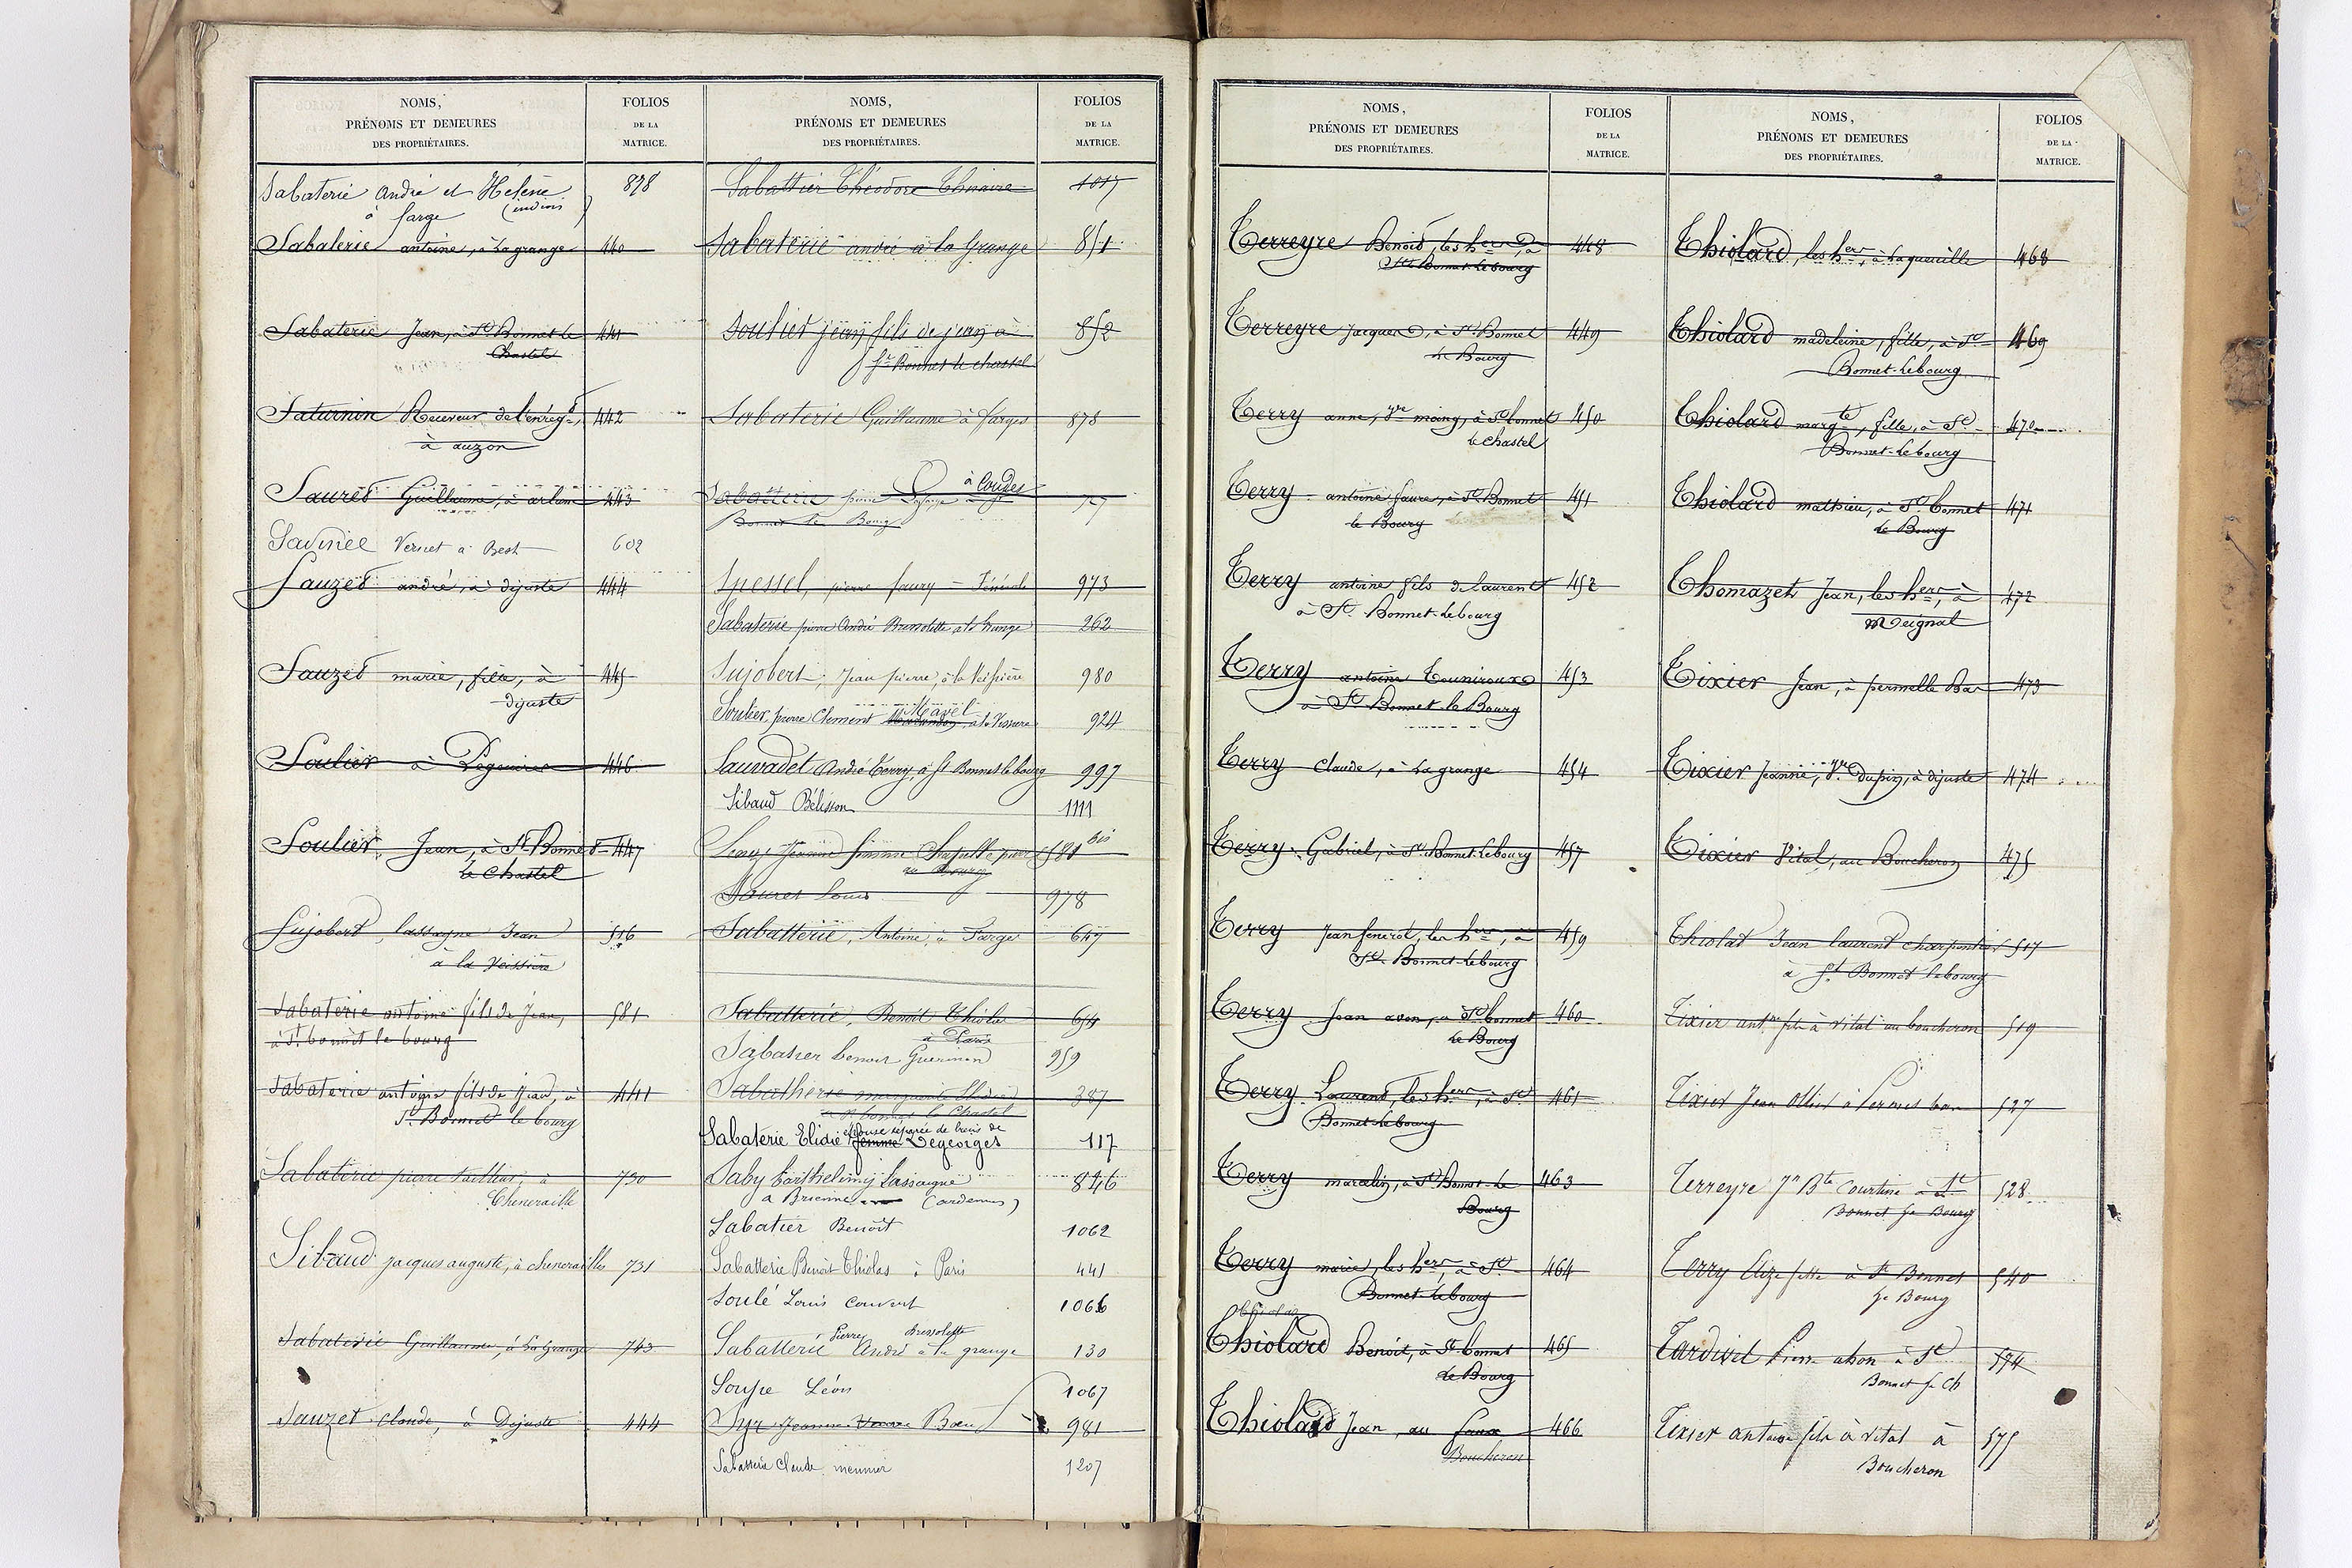 NOMS,
PRÉNOMS ET DEMEURES
DES PROPRIÉTAIRES.
FOLIOS
DE LA
MATRICE.
Sabaterie André et Hélène 878
à farge (indivis)
Sabaterie antoine, à Lagrange 440
Sabaterie Jean, à St Bonnet le 441
Chastel
Saturnin Receveur de l'enregt, 442
à auzon
Sauret Guillaume, à arlanc 443
Savinée Vernet à Best 602
Sauzet andré, à dijuste 444
Sauzet marie, fille, à 445
dijuste
Soulier à 446
Soulier Jean, à St Bonnet 447
le Chastel
Sujobert lassagne Jean 516
à la Veissière
Sabaterie antoine fils de Jean, 581
à St bonnet le bourg
Sabaterie antoine fils de jean, à 441
St Bonnet le bourg
Sabaterie pierre tailleur, à 730
Cheneraille
Sibaud jacques auguste, à chenerailles 731
Sabaterie Guillaume, à La Grange 743
Sauzet claude, à Dijuste 444
NOMS,
PRÉNOMS ET DEMEURES
DES PROPRIÉTAIRES.
FOLIOS
DE LA
MATRICE.
Sabattier Théodore 1017
Sabaterie andré à la Grange 851
Soulier jean fils de jean à 852
St Bonnet le chastel
Sabaterie Guillaume à farges 878
à Coudes
Sabatterie 777
Bonnet le Bourg
pierre faury 973
Sabaterie pierre André Bressolette à la Grange 262
Sujobert, Jean pierre, à la Veissière 980
Mavel
Soulier pierre Clement à la Veissiere 924
Sauvadet André Terry, à St Bonnet le bourg 997
Sibaud Bélisson 1111
Jeanne femme 581 bis
au Bourg
Sauret Louis 978
Sabatterie, Antoine, à Farge 647
Sabatterie, Benoit Thiolas 654
à Paris
Sabatier benoit 959
Sabatherie marguerite Elidie 387
à St bonnet le Chastel
épouse séparée de biens de
Sabaterie Elidie femme Degeorges 117
Saby Barthélemy Lassaigne 846
à Brienne (ardennes)
Sabatier Benoît 1062
Sabatterie Benoit Thiolas à Paris 441
Soulé Louis couvert 1066
Pierre Bressolette
Sabatterie André à la grange 130
Soupe Léon 1067
Jeanne 981
Sabatterie Claude meunier 1207
NOMS,
PRÉNOMS ET DEMEURES
DES PROPRIÉTAIRES.
FOLIOS
DE LA
MATRICE.
Terreyre Benoit, les hers, à 448
St Bonnet-le bourg
Terreyre jacques, à St Bonnet 449
le Bourg
Terry anne, Vve maing, à St bonnet 450
le chastel
Terry antoine faure, à St Bonnet 451
le Bourg
Terry antoine fils de laurent 452
à St Bonnet-lebourg
Terry antoine Touniroux 453
à St Bonnet le Bourg
Terry Claude, à La grange 454
Terry Gabriel, à St Bonnet-lebourg 457
Terry Jean fenerol, les hers, à 459
St Bonnet-lebourg
Terry Jean avon, à St bonnet 460
le Bourg
Terry Laurent, les hers, à St 461
Bonnet-lebourg
Terry marcelin, à St Bonnet-le 463
Bourg
Terry marie, les hers, à St 464
Bonnet-lebourg
Thiolas
Thiolard Benoit, à St bonnet 465
le Bourg
Thiolard Jean, au faux 466
Boucheron
NOMS,
PRÉNOMS ET DEMEURES
DES PROPRIÉTAIRES.
FOLIOS
DE LA
MATRICE.
Thiolard, les hers, à Laqueuille 468
Thiolard madeleine, fille, à St 469
Bonnet-lebourg
Thiolard margte, fille, à St 470
Bonnet-lebourg
Thiolard mathieu, à St bonnet 471
le Bourg
Thomazet Jean, les hers, à 472
meignal
Tixier Jean, à permelle Bas 473
Tixier Jeanne, Vve Dupin, à dijuste 474
Tixier Vital, au Boucheron 475
Thiolat Jean laurent charpentier 517
à St Bonnet le bourg
Tixier antne fils à vital au boucheron 519
Tixier Jean 527
Terreyre Jn Bte Courtine à St 528
Bonnet le Bourg
Terry Elize fille à St Bonnet 540
le Bourg
Tardivel Pierre à St 574
Bonnet le Ch
Tixier antoine fils à vital à 575
Boucheron